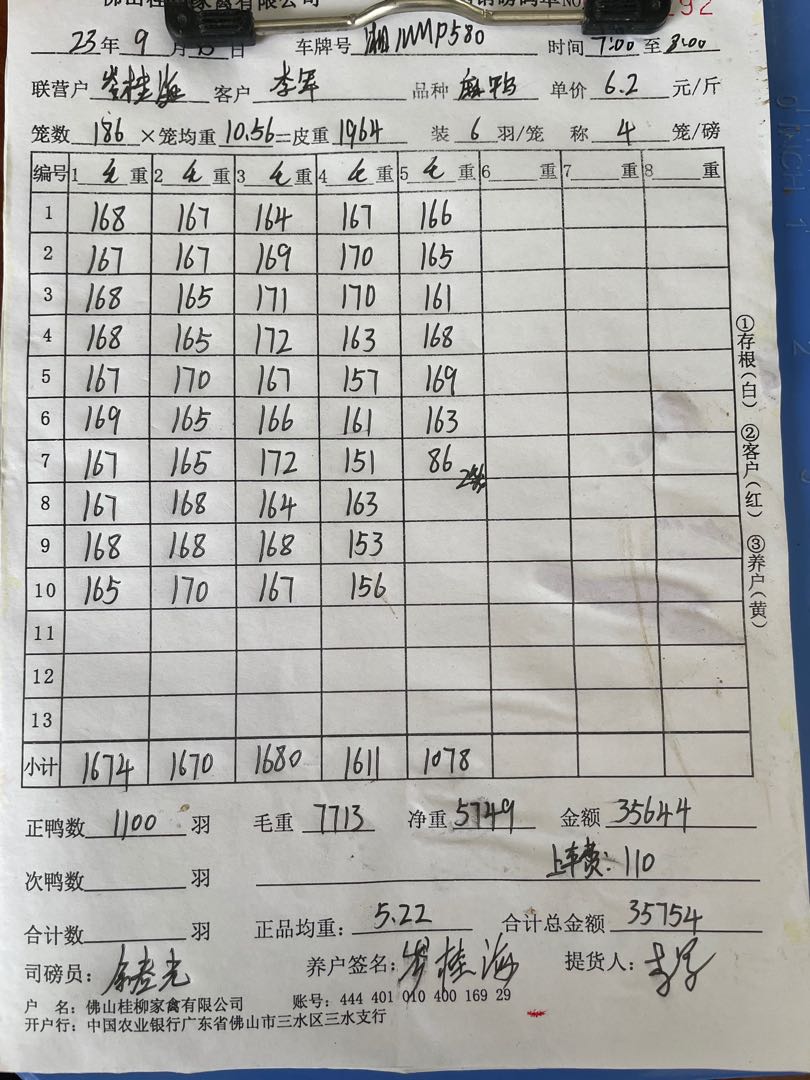 佛山桂柳家禽有限公司
NO.
292
23年9月13日 车牌号 湘 580 时间 7:00 至 8:00
联营户 岑桂海 客户 李军 品种 麻鸭 单价 6.2 元/斤
笼数 186 ×笼均重 10.56=皮重 1964 装 6 羽/笼 称 4 笼/磅
编号 1 毛 重 2 毛 重 3 毛 重 4 毛 重 5 毛 重 6 重 7 重 8 重
1 168 167 164 167 166
2 167 167 169 170 165
3 168 165 171 170 161
4 168 165 172 163 168
5 167 170 167 157 169
6 169 165 166 161 163
7 167 165 172 151 86 2笼
8 167 168 164 163
9 168 168 168 153
10 165 170 167 156
11
12
13
小计 1674 1670 1680 1611 1078
正鸭数 1100 羽 毛重 7713 净重 5749 金额 35644
次鸭数 羽 上车费: 110
合计数 羽 正品均重: 5.22 合计总金额 35754
司磅员: 养户签名: 岑桂海 提货人: 李军
户 名: 佛山桂柳家禽有限公司 账号: 444 401 010 400 169 29
开户行: 中国农业银行广东省佛山市三水区三水支行
①存根(白) ②客户(红) ③养户(黄)